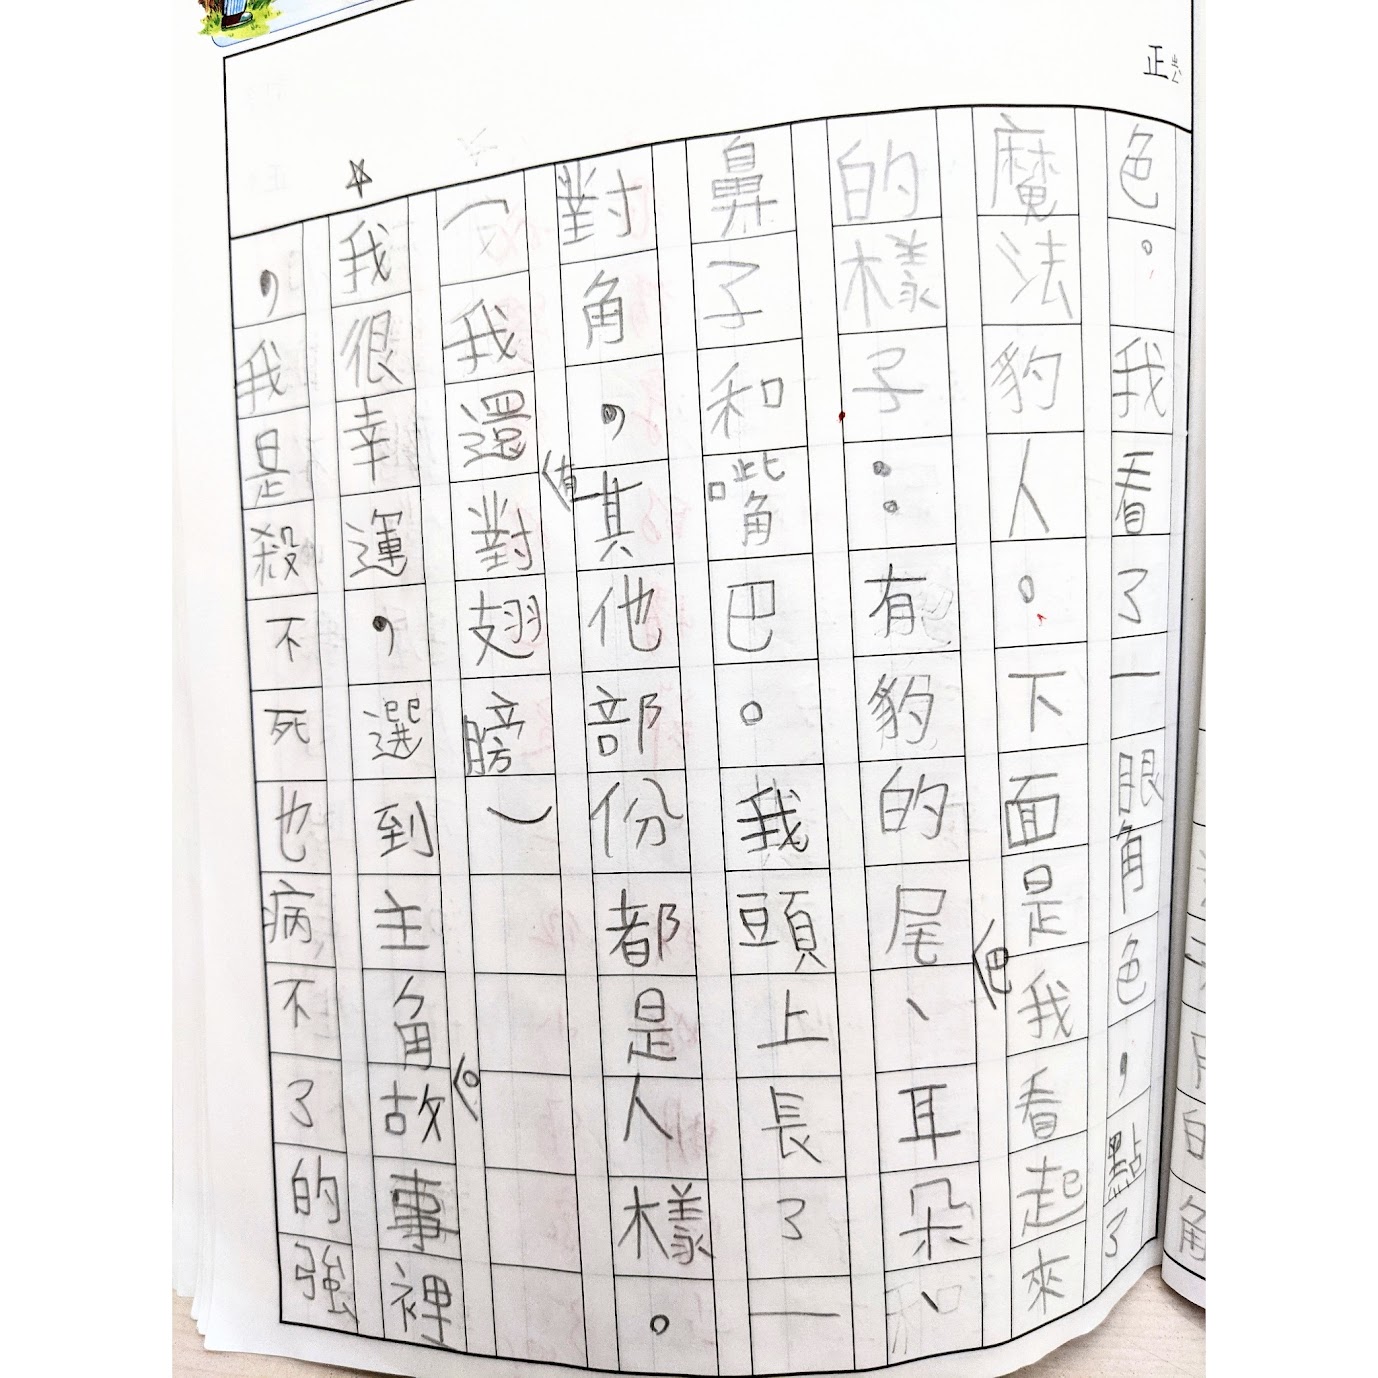 正
色。我看了一眼角色，點了
魔法豹人。下面是我看起來
的樣子：有豹的尾巴、耳朵、
鼻子和嘴巴。我頭上長了一
對角，其他部份都是人樣。
（我還有對翅膀）
我很幸運，選到主角。故事裡
，我是殺不死也病不了的強